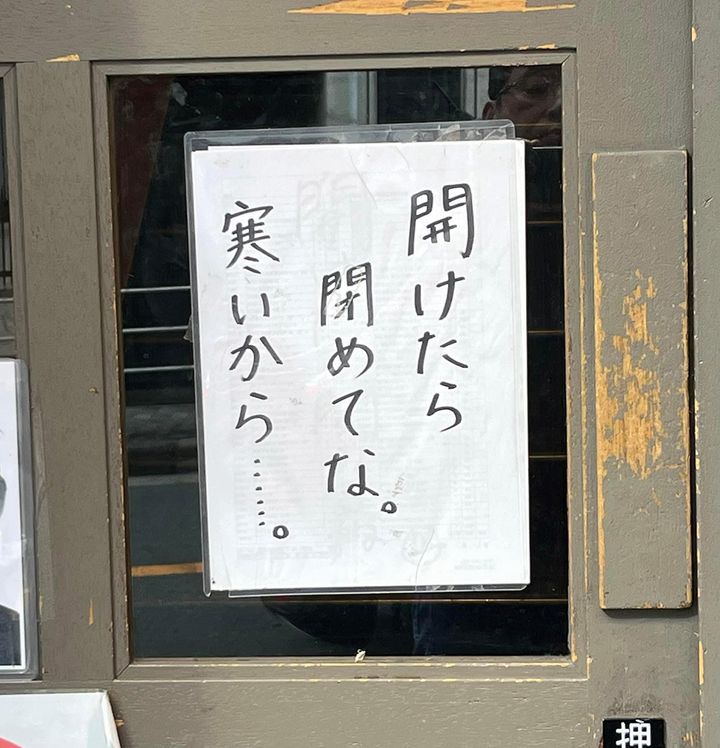 開けたら
閉めてな。
寒いから……。
押